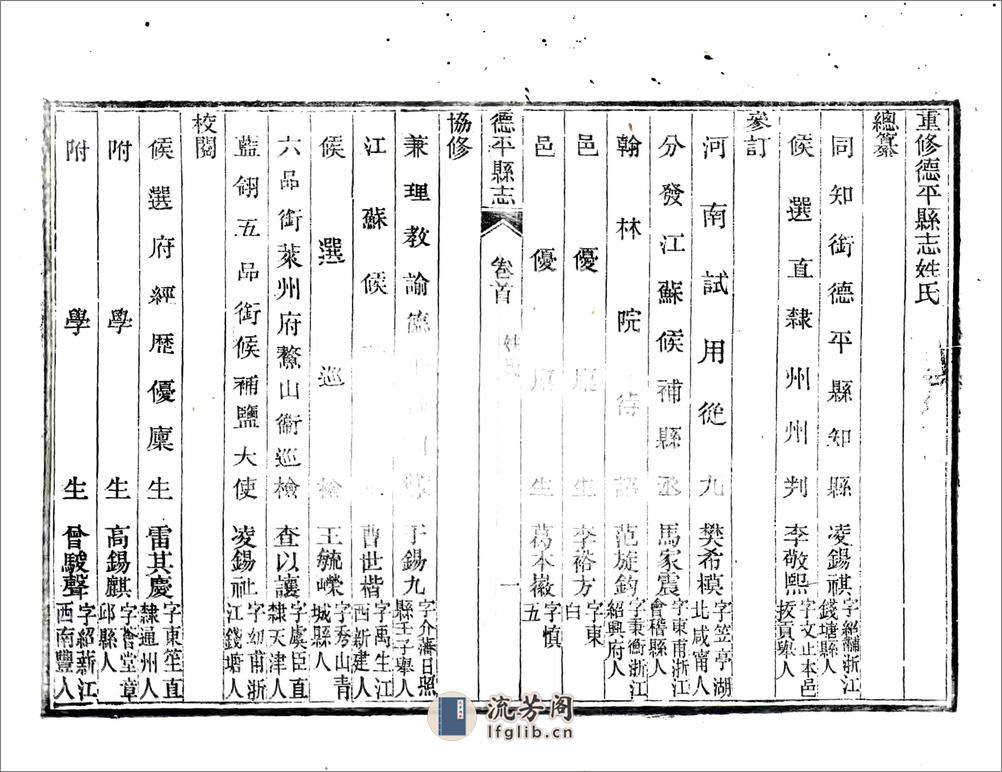 重修德平縣志姓氏
總纂
同知銜德平縣知縣 凌錫祺 字紹黼浙江錢塘縣人
候選直隸州州判 李敬熙 字文止本邑拔貢舉人
參訂
河南試用從九 樊希模 字笠亭湖北咸甯人
分發江蘇候補縣丞 馬家震 字東甫浙江會稽縣人
翰林院待詔 范旋鈞 字秉衡浙江紹興府人
邑優廩生 李裕方 字東白
邑優廩生 葛本徽 字慎五
德平縣志 卷首 姓氏 一
協修
兼理教諭 于錫九 字介濤日照縣壬子舉人
江蘇候 曹世楷 字禹生江西新建人
候選巡檢 王毓嶸 字秀山青城縣人
六品銜萊州府鰲山衞巡檢 查以讓 字虞臣直隸天津人
藍翎五品銜候補鹽大使 凌錫祉 字幼甫浙江錢塘人
校閱
候選府經歷優廩生 雷其慶 字東笙直隸通州人
附學生 高錫麒 字薈堂章邱縣人
附學生 曾駿聲 字紹蘄江西南豐人
流芳阁
lfglib.cn